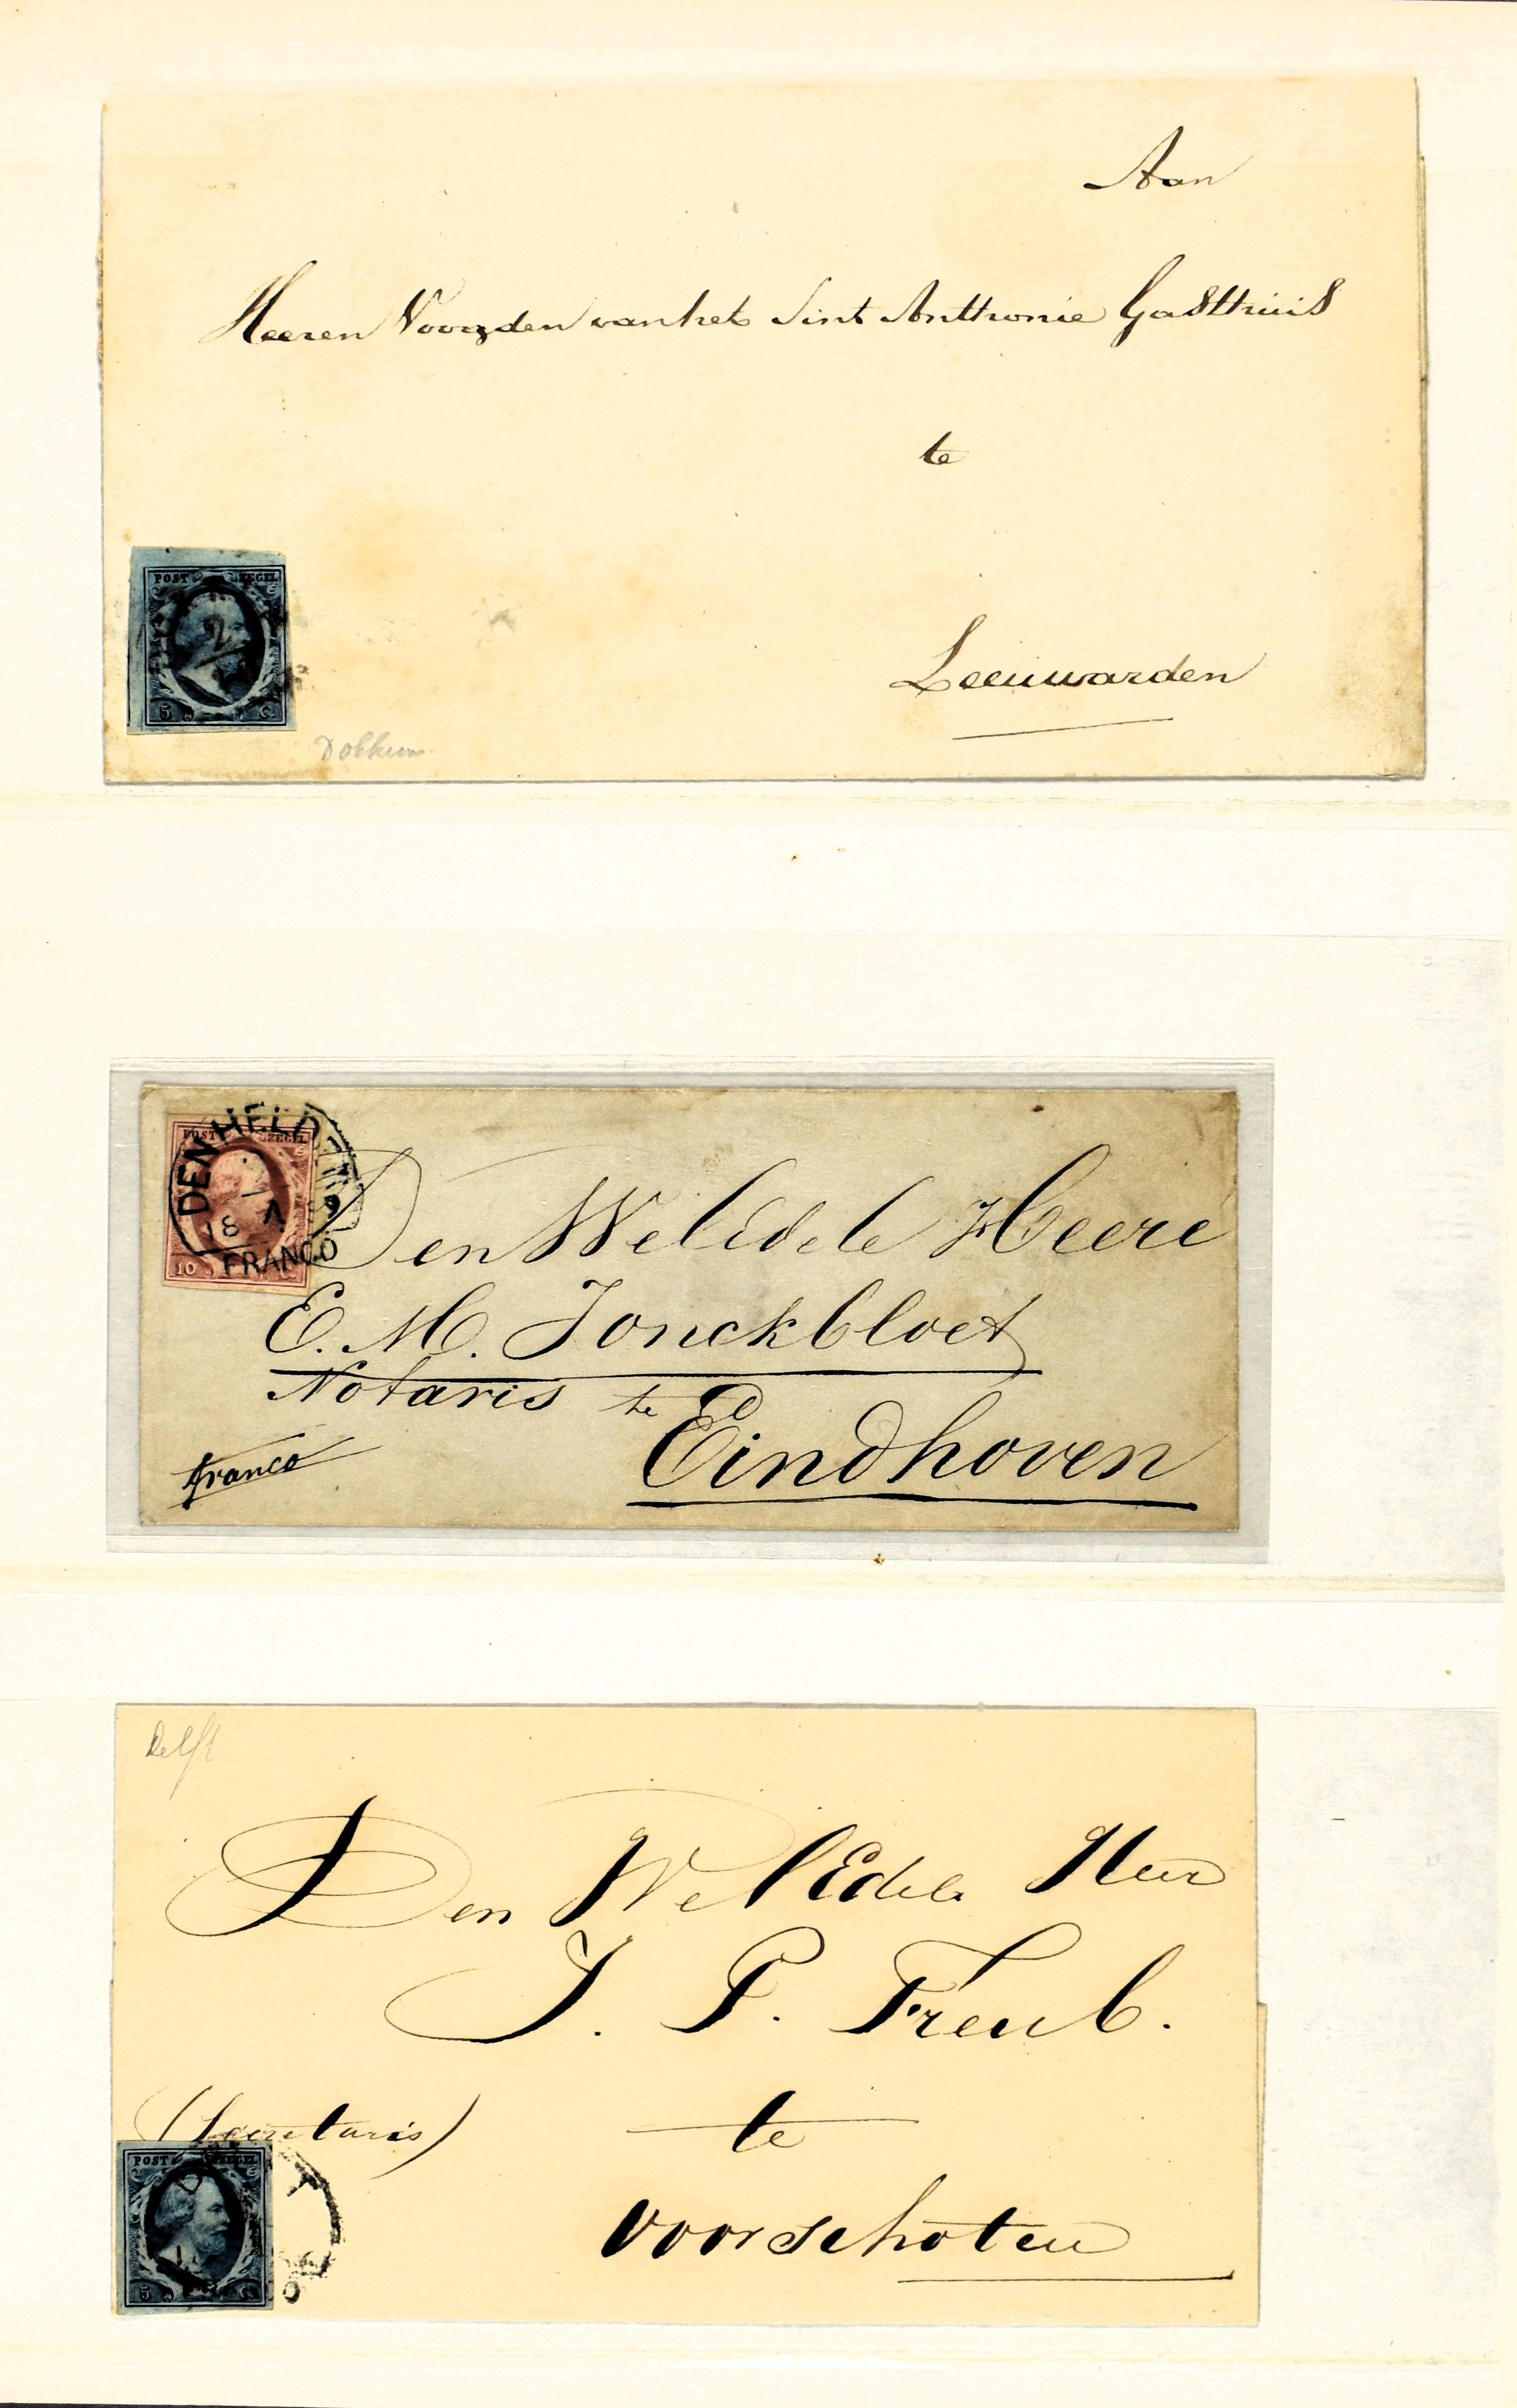 Aan
Heeren Voogden van het Sint Anthonie Gasthuis
te
Leeuwarden
POST ZEGEL
2
5 C.
Dokkum
POST ZEGEL
DEN HELD
18 9
FRANCO
10
Den WelEdele Heere
E. M. Jonckbloet
Notaris te
Eindhoven
franco
Delft
Den WelEdele Heer
J. P. Treub.
(Secretaris)
te
Voorschoten
POST ZEGEL
5